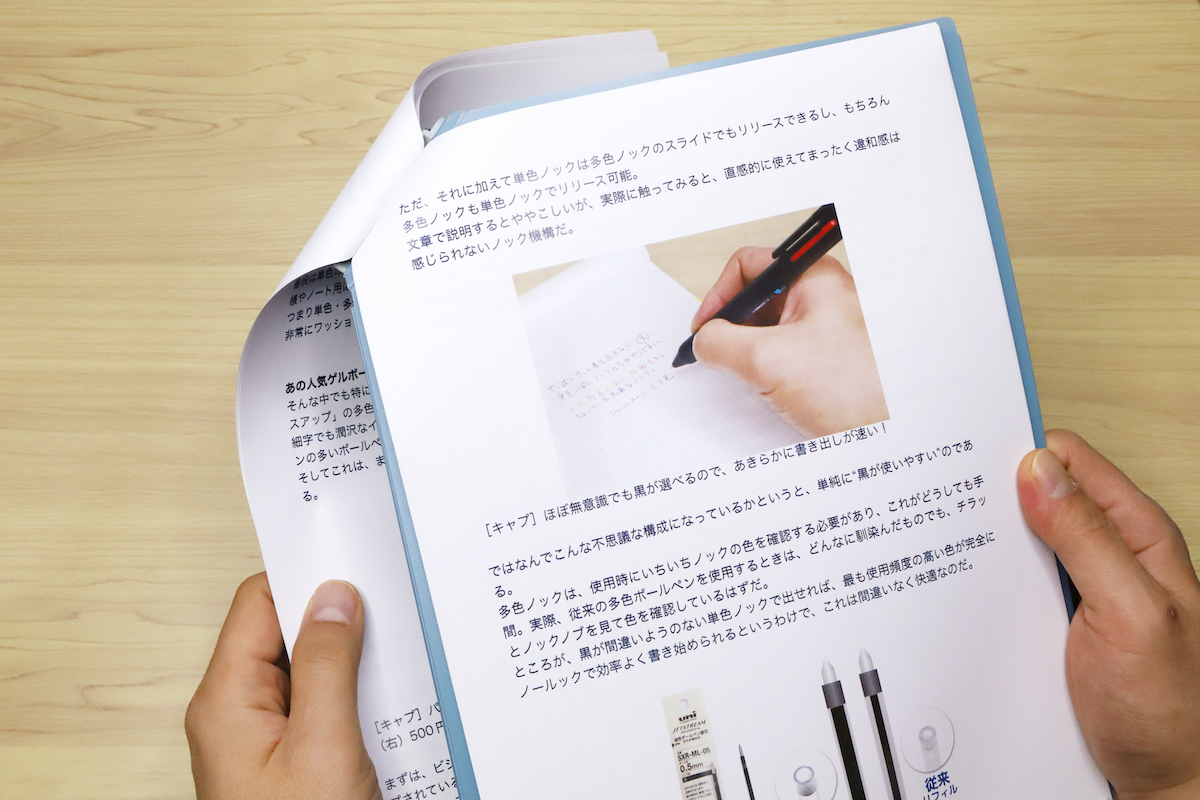 ただ、それに加えて単色ノックは多色ノックのスライドでもリリースできるし、もちろん
多色ノックも単色ノックでリリース可能。
文章で説明するとややこしいが、実際に触ってみると、直感的に使えてまったく違和感は
感じられないノック機構だ。
[キャプ] ほぼ無意識でも黒が選べるので、あきらかに書き出しが速い!
ではなんでこんな不思議な構成になっているかというと、単純に“黒が使いやすい”のであ
る。
多色ノックは、使用時にいちいちノックの色を確認する必要があり、これがどうしても手
間。実際、従来の多色ボールペンを使用するときは、どんなに馴染んだものでも、チラッ
とノックノブを見て色を確認しているはずだ。
ところが、黒が間違いようのない単色ノックで出せれば、最も使用頻度の高い色が完全に
ノールックで効率よく書き始められるというわけで、これは間違いなく快適なのだ。
uni
JETSTREAM
SXR-ML-05
0.5mm
従来
リフィル
普段は単色
帳やノート用
つまり単色・多
非常にワッショ
あの人気ゲルボー
そんな中でも特に
スアップ」の多色
細字でも潤沢なイ
ンの多いボールペ
そしてこれは、ま
る。
[キャプ] バ
(右) 500円
まずは、ビジ
プされている